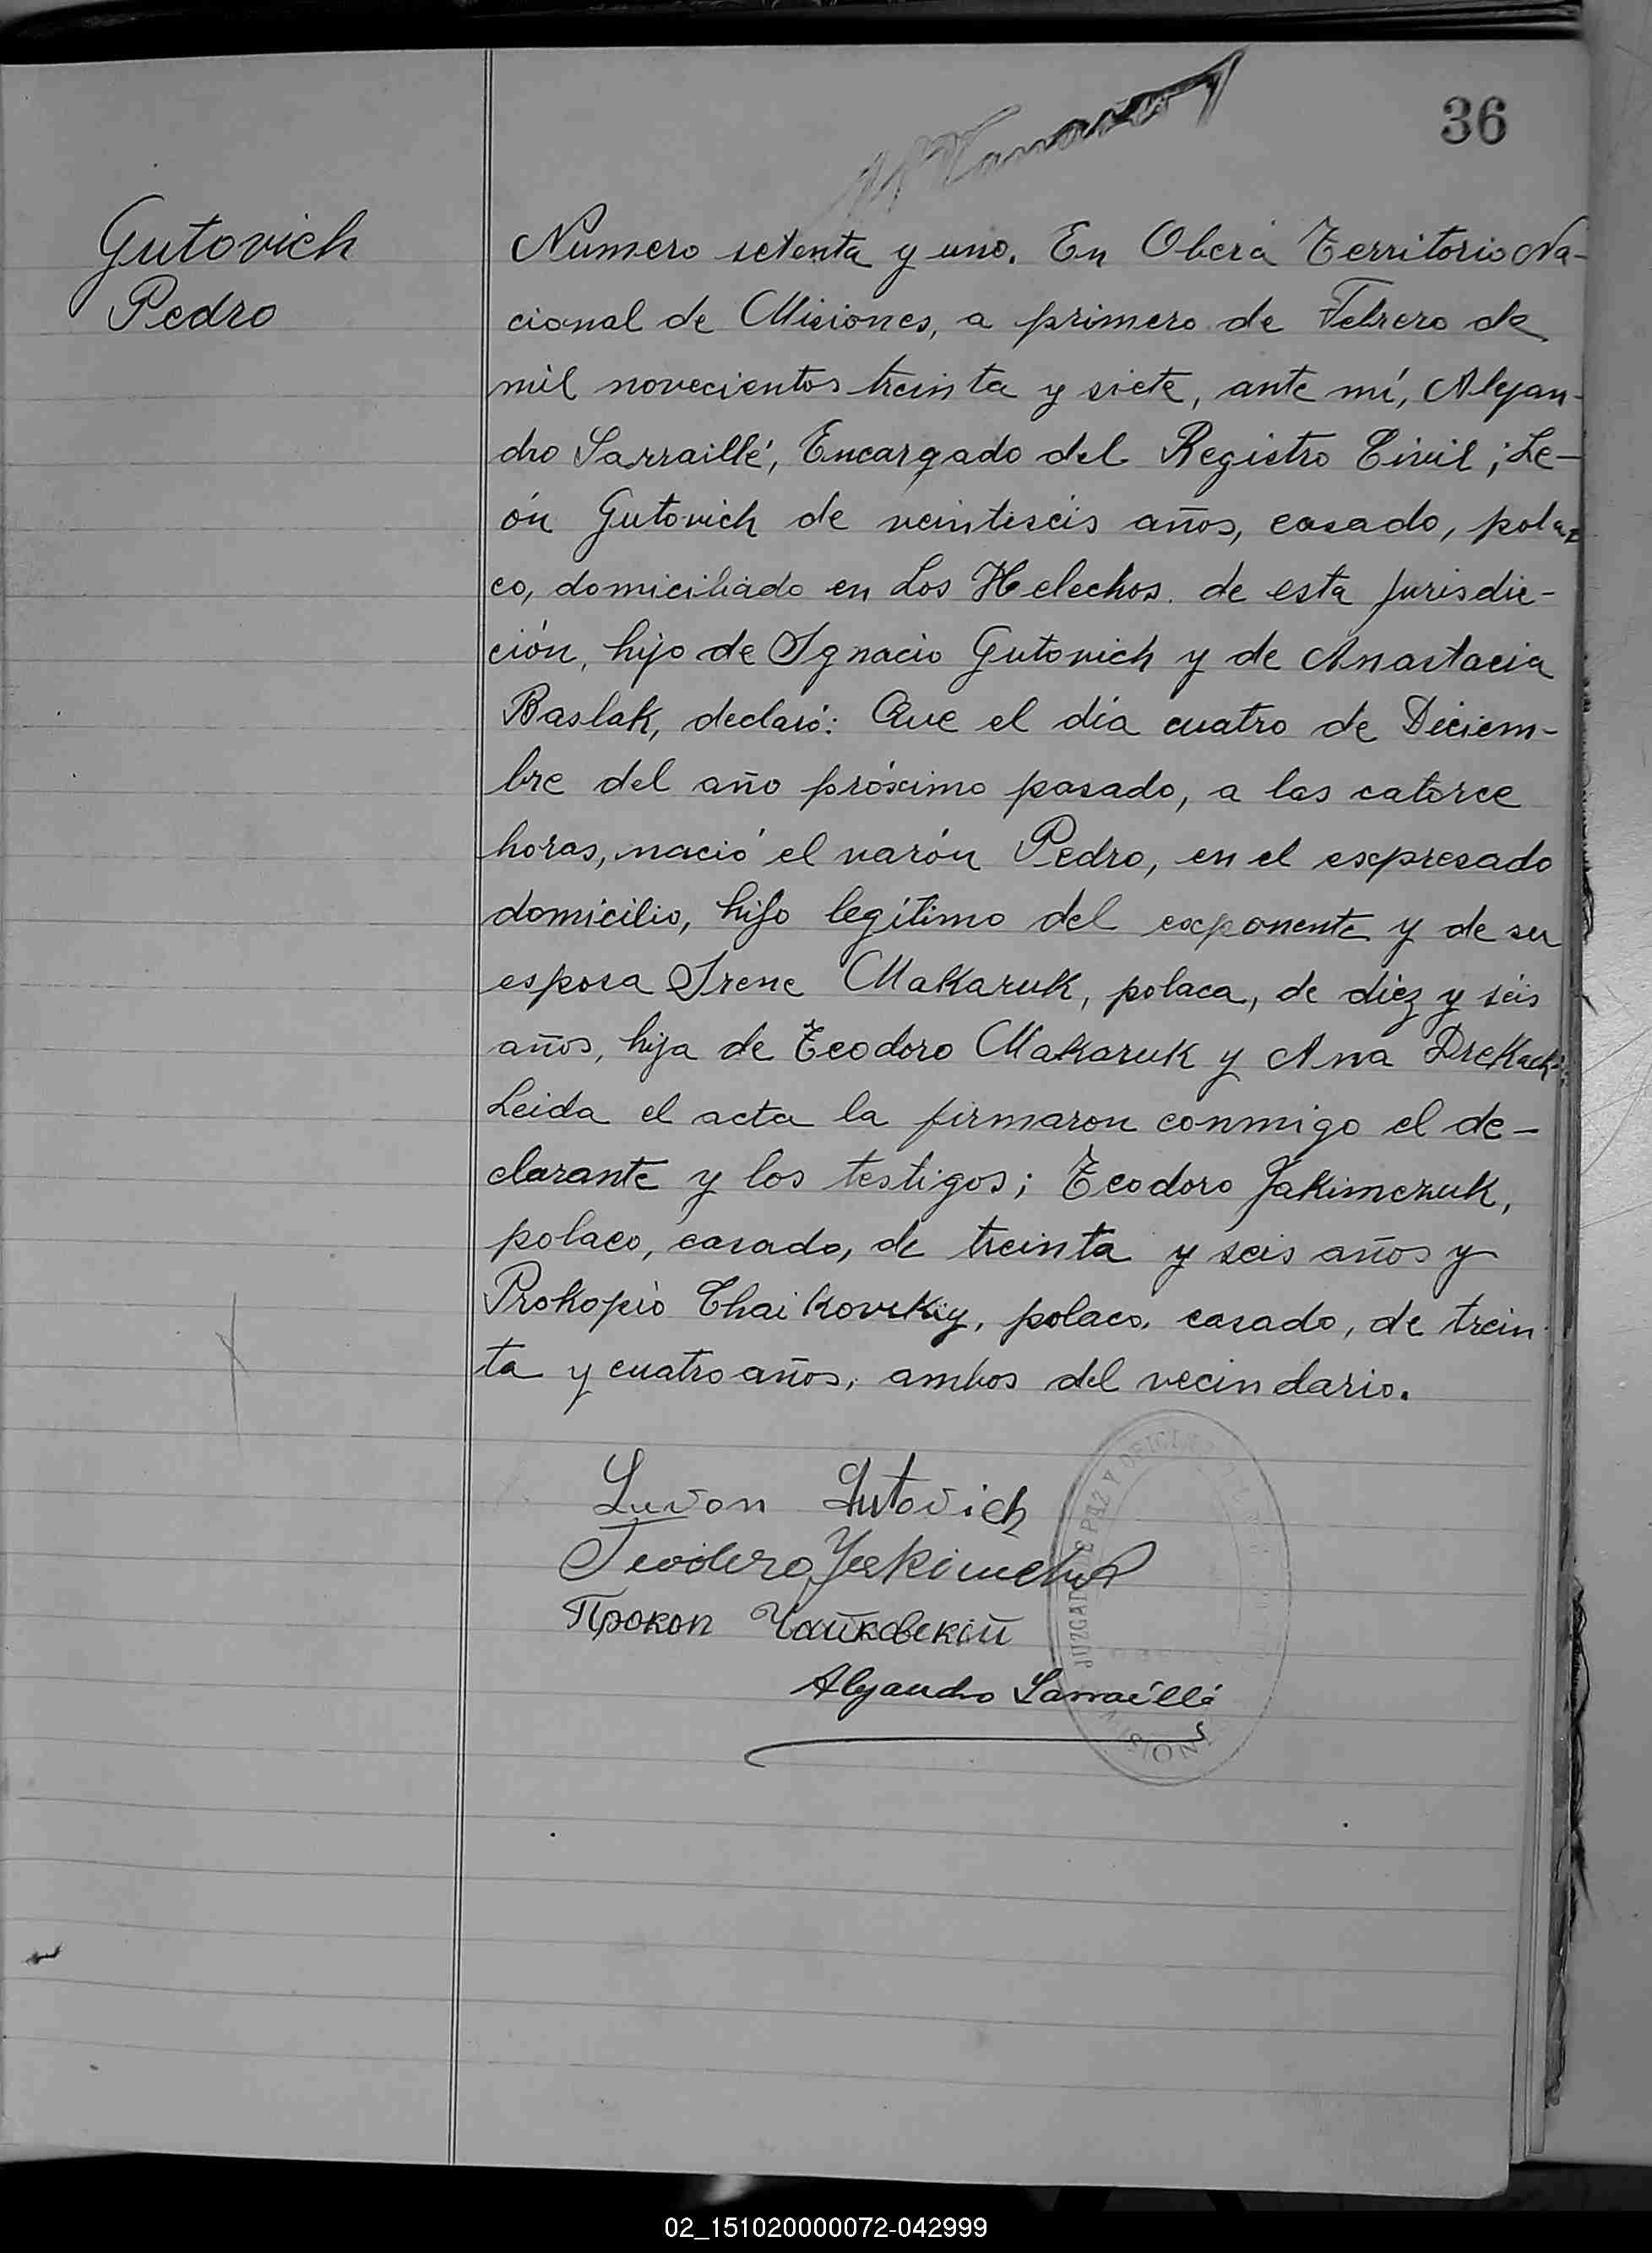 36
Gutovich
Pedro
Numero setenta y uno. En Oberá Territorio Na-
cional de Misiones, a primero de Febrero de
mil novecientos treinta y siete, ante mí, Alejan-
dro Sarraillé, Encargado del Registro Civil; Le-
ón Gutovich de veintiseis años, casado, pola-
co, domiciliado en Los Helechos. de esta jurisdic-
ción, hijo de Ignacio Gutovich y de Anastacia
Baslak, declaró: Que el día cuatro de Diciem-
bre del año próximo pasado, a las catorce
horas, nació el varón Pedro, en el expresado
domicilio, hijo legítimo del exponente y de su
esposa Irene Makaruk, polaca, de diez y seis
años, hija de Teodoro Makaruk y Ana
Leida el acta la firmaron conmigo el de-
clarante y los testigos; Teodoro Jakimczuk,
polaco, casado, de treinta y seis años y
Prokopio Chaikovskiy, polaco, casado, de trein
ta y cuatro años, ambos del vecindario.
Luvon Gutovich
Teodoro
Прокоп Чайковский
Alejandro Sarraillé
JUZGADO DE PAZ Y OFICINA
MISIONES
02_151020000072-042999